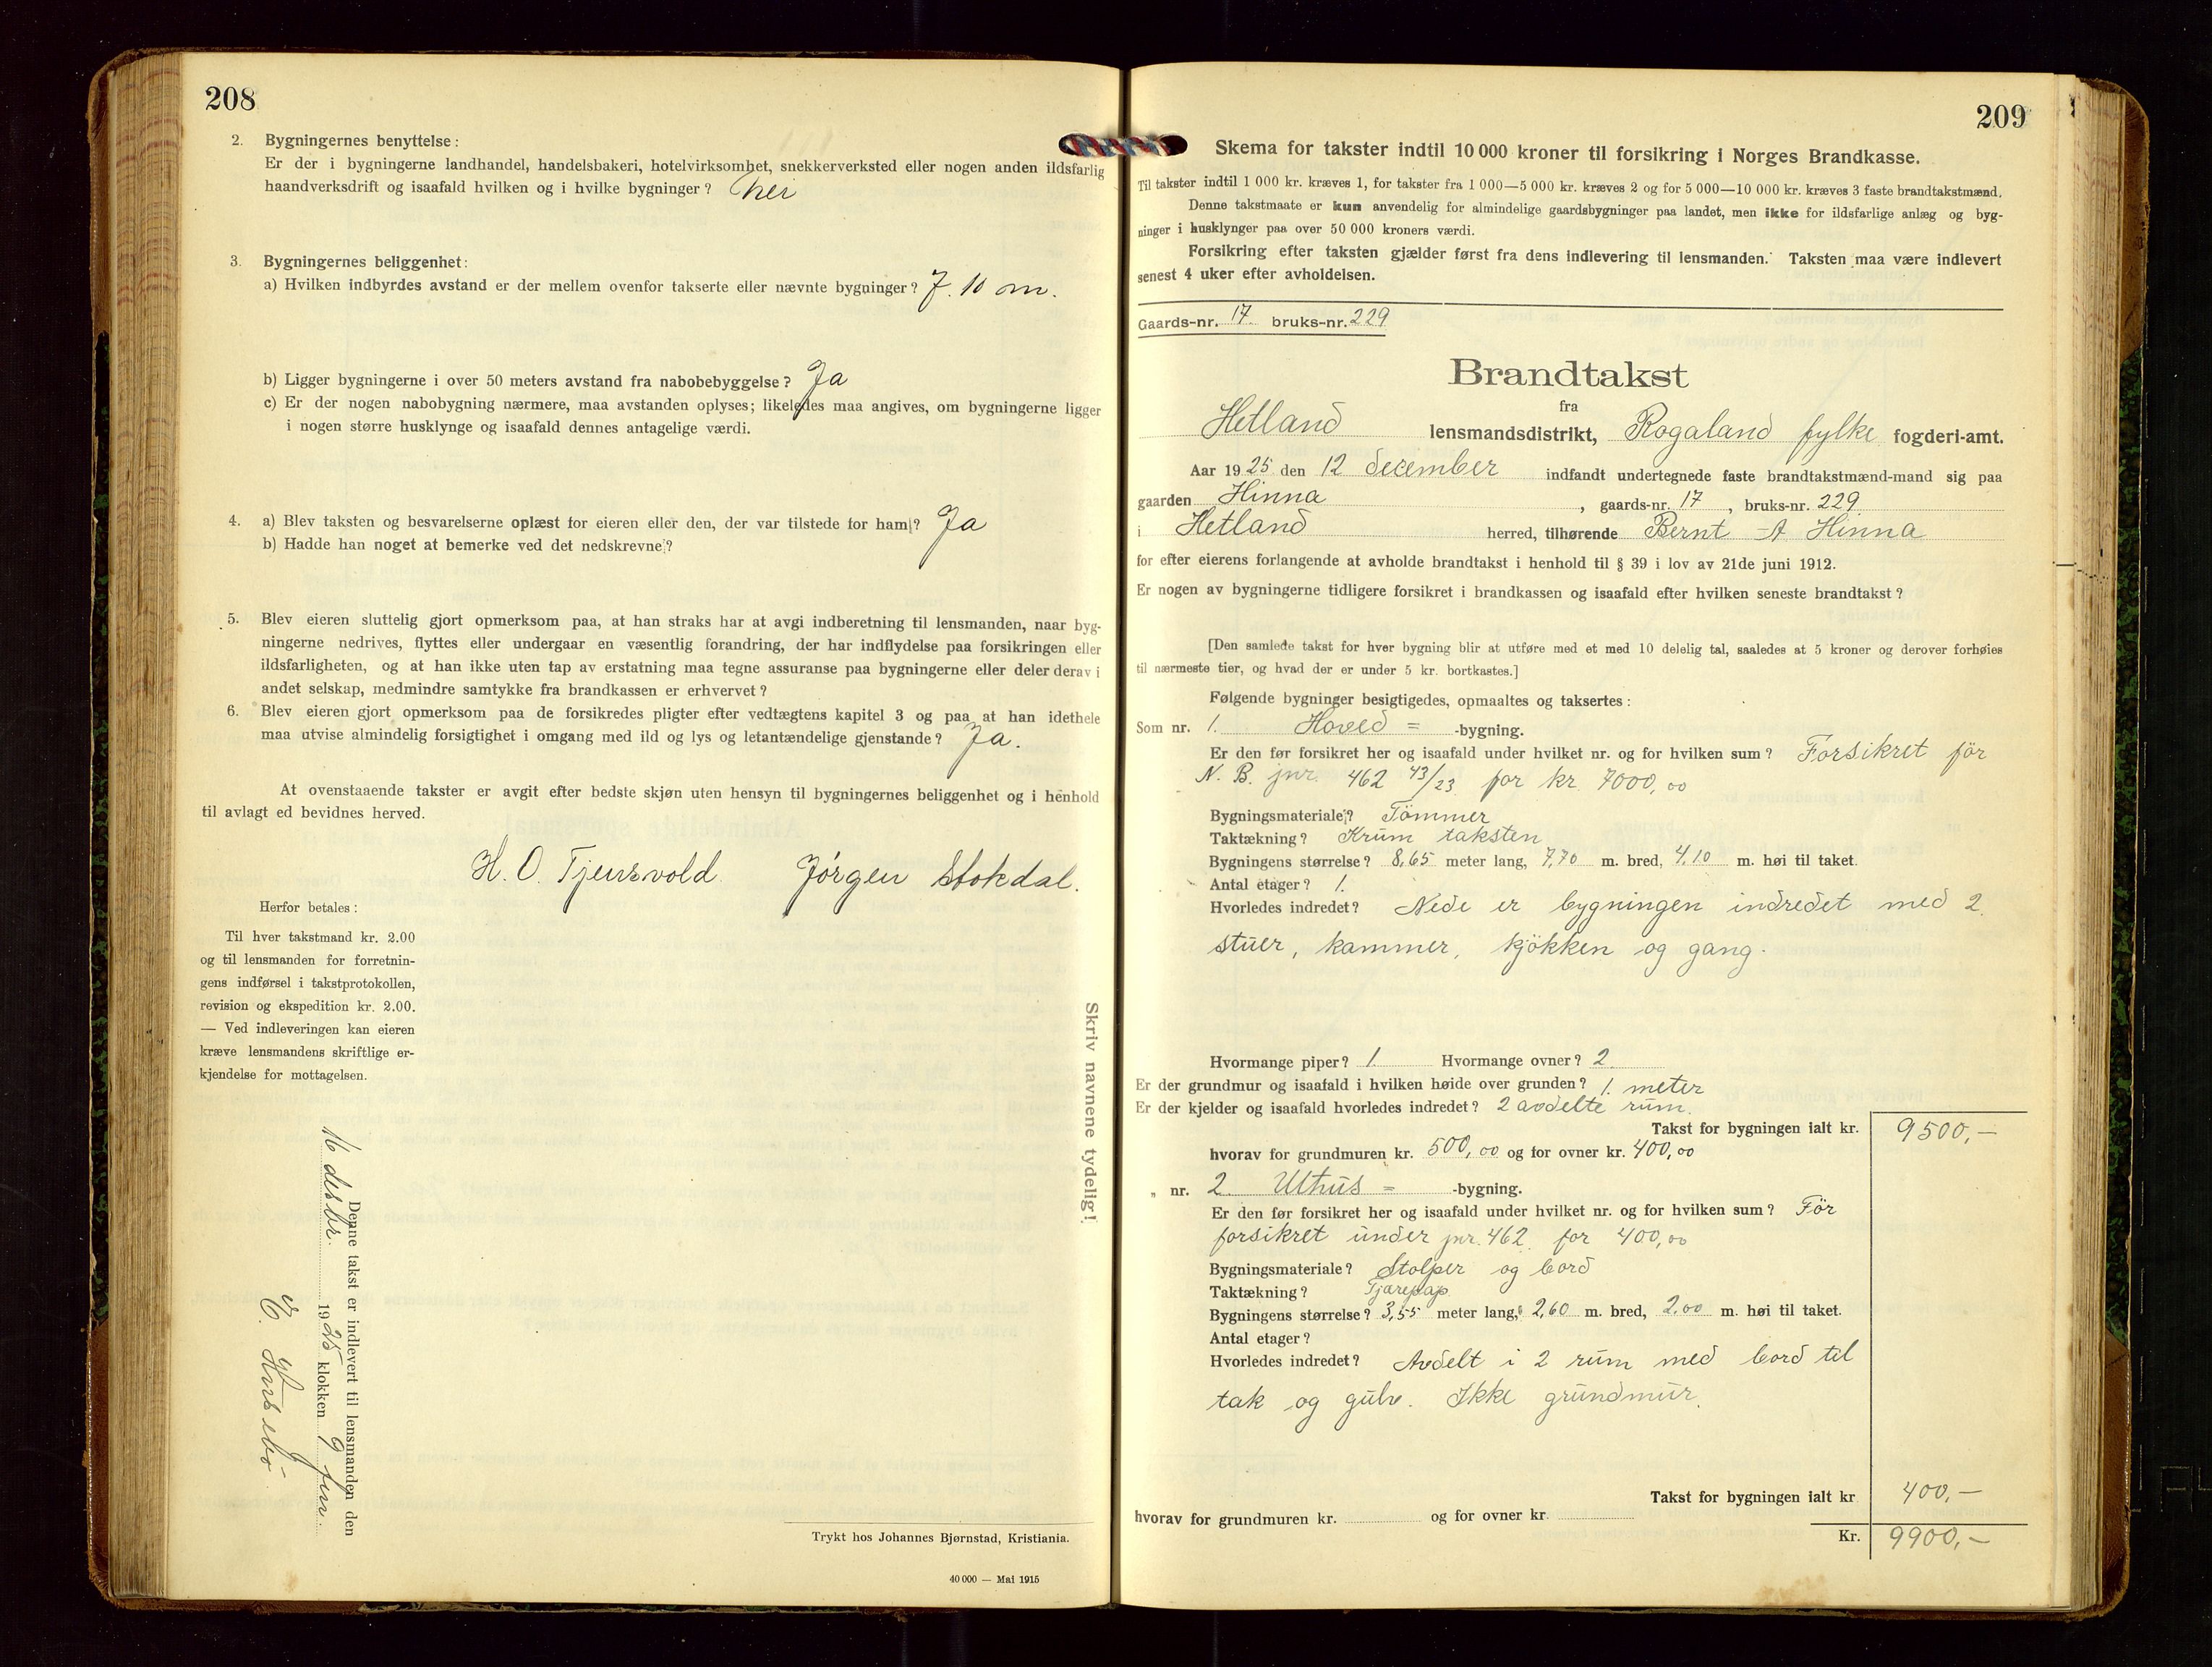 208
2. Bygningernes benyttelse:
Er der i bygningerne landhandel, handelsbakeri, hotelvirksomhet, snekkerverksted eller nogen anden ildsfarlig
haandverksdrift og isaafald hvilken og i hvilke bygninger? Nei
3. Bygningernes beliggenhet:
a) Hvilken indbyrdes avstand er der mellem ovenfor takserte eller nævnte bygninger? 7.10 m.
b) Ligger bygningerne i over 50 meters avstand fra nabobebyggelse? Ja
c) Er der nogen nabobygning nærmere, maa avstanden oplyses; likeledes maa angives, om bygningerne ligger
i nogen større husklynge og isaafald dennes antagelige værdi.
4. a) Blev taksten og besvarelserne oplæst for eieren eller den, der var tilstede for ham? Ja
b) Hadde han noget at bemerke ved det nedskrevne?
5. Blev eieren sluttelig gjort opmerksom paa, at han straks har at avgi indberetning til lensmanden, naar byg-
ningerne nedrives, flyttes eller undergaar en væsentlig forandring, der har indflydelse paa forsikringen eller
ildsfarligheten, og at han ikke uten tap av erstatning maa tegne assuranse paa bygningerne eller deler derav i
andet selskap, medmindre samtykke fra brandkassen er erhvervet?
6. Blev eieren gjort opmerksom paa de forsikredes pligter efter vedtægtens kapitel 3 og paa at han idethele
maa utvise almindelig forsigtighet i omgang med ild og lys og letantændelige gjenstande? Ja.
At ovenstaaende takster er avgit efter bedste skjøn uten hensyn til bygningernes beliggenhet og i henhold
til avlagt ed bevidnes herved.
H. O. Tjensvold. Jørgen Stokdal.
Herfor betales:
Til hver takstmand kr. 2.00
og til lensmanden for forretnin-
gens indførsel i takstprotokollen,
revision og ekspedition kr. 2.00.
— Ved indleveringen kan eieren
kræve lensmandens skriftlige er-
kjendelse for mottagelsen.
Skriv navnene tydelig!
Denne takst er indlevert til lensmanden den
16 desbr. 1925 klokken 9 fm.
Trykt hos Johannes Bjørnstad, Kristiania.
40 000 — Mai 1915
209
Skema for takster indtil 10 000 kroner til forsikring i Norges Brandkasse.
Til takster indtil 1 000 kr. kræves 1, for takster fra 1 000—5 000 kr. kræves 2 og for 5 000—10 000 kr. kræves 3 faste brandtakstmænd.
Denne takstmaate er kun anvendelig for almindelige gaardsbygninger paa landet, men ikke for ildsfarlige anlæg og byg-
ninger i husklynger paa over 50 000 kroners værdi.
Forsikring efter taksten gjælder først fra dens indlevering til lensmanden. Taksten maa være indlevert
senest 4 uker efter avholdelsen.
Gaards-nr. 17 bruks-nr. 229
Brandtakst
fra
Hetland lensmandsdistrikt, Rogaland fylke fogderi-amt.
Aar 1925 den 12 december indfandt undertegnede faste brandtakstmænd-mand sig paa
gaarden Hinna, gaards-nr. 17, bruks-nr. 229
i Hetland herred, tilhørende Bernt A Hinna
for efter eierens forlangende at avholde brandtakst i henhold til § 39 i lov av 21de juni 1912.
Er nogen av bygningerne tidligere forsikret i brandkassen og isaafald efter hvilken seneste brandtakst?
[Den samlede takst for hver bygning blir at utføre med et med 10 delelig tal, saaledes at 5 kroner og derover forhøies
til nærmeste tier, og hvad der er under 5 kr. bortkastes.]
Følgende bygninger besigtigedes, opmaaltes og taksertes:
Som nr. 1. Hoved= -bygning.
Er den før forsikret her og isaafald under hvilket nr. og for hvilken sum? Forsikret för
N. B. jnr. 462 43/23 for kr. 7000,00
Bygningsmateriale? Tömmer
Taktækning? Krum taksten
Bygningens størrelse? 8,65 meter lang, 7,70 m. bred, 4,10 m. høi til taket.
Antal etager? 1.
Hvorledes indredet? Nede er bygningen indredet med 2
stuer, kammer, kjökken og gang.
Hvormange piper? 1. Hvormange ovner? 2.
Er der grundmur og isaafald i hvilken høide over grunden? 1. meter
Er der kjelder og isaafald hvorledes indredet? 2 avdelte rum.
Takst for bygningen ialt kr. 9500,—
hvorav for grundmuren kr. 500,00 og for ovner kr. 400,00
„ nr. 2. Uthus= -bygning.
Er den før forsikret her og isaafald under hvilket nr. og for hvilken sum? För
forsikret under jnr. 462 for 400,00
Bygningsmateriale? Stolper og bord
Taktækning? Tjærepap
Bygningens størrelse? 3,55 meter lang, 2,60 m. bred, 2,00 m. høi til taket.
Antal etager?
Hvorledes indredet? Avdelt i 2 rum med bord til
tak og gulv. Ikke grundmur.
Takst for bygningen ialt kr 400,—
hvorav for grundmuren kr. og for ovner kr.
Kr. 9900,—